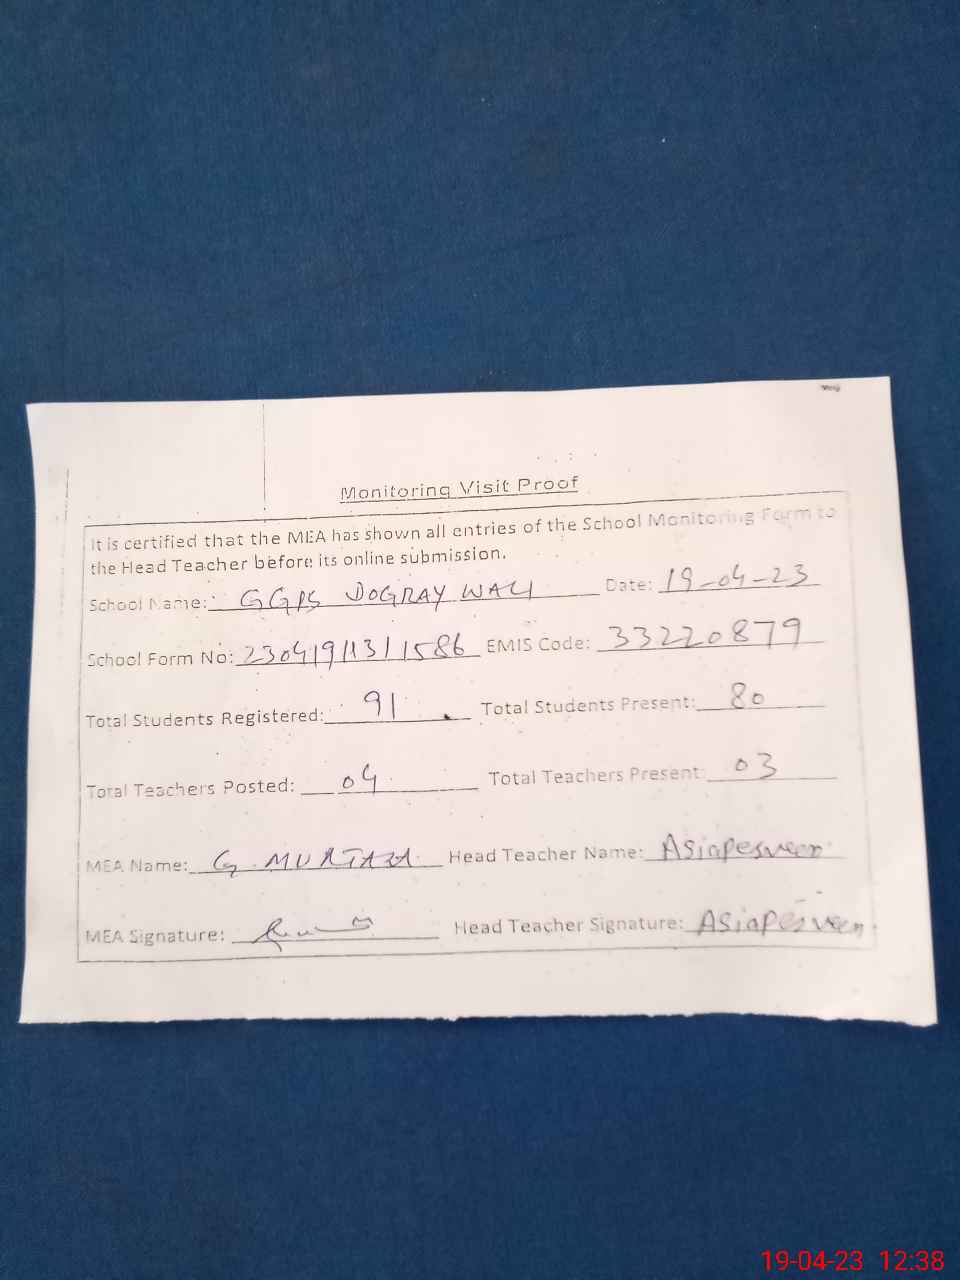 Monitoring Visit Proof
It is certified that the MEA has shown all entries of the School Monitoring Form to
the Head Teacher before its online submission.
School Name: GGPS DOGRAY WALI Date: 19-04-23
School Form No: 23041911311586 EMIS Code: 33220879
Total Students Registered: 91 Total Students Present: 80
Total Teachers Posted: 04 Total Teachers Present: 03
MEA Name: G. MURTAZA Head Teacher Name: Asiaperveen
MEA Signature: Head Teacher Signature: Asiaperveen
19-04-23 12:38